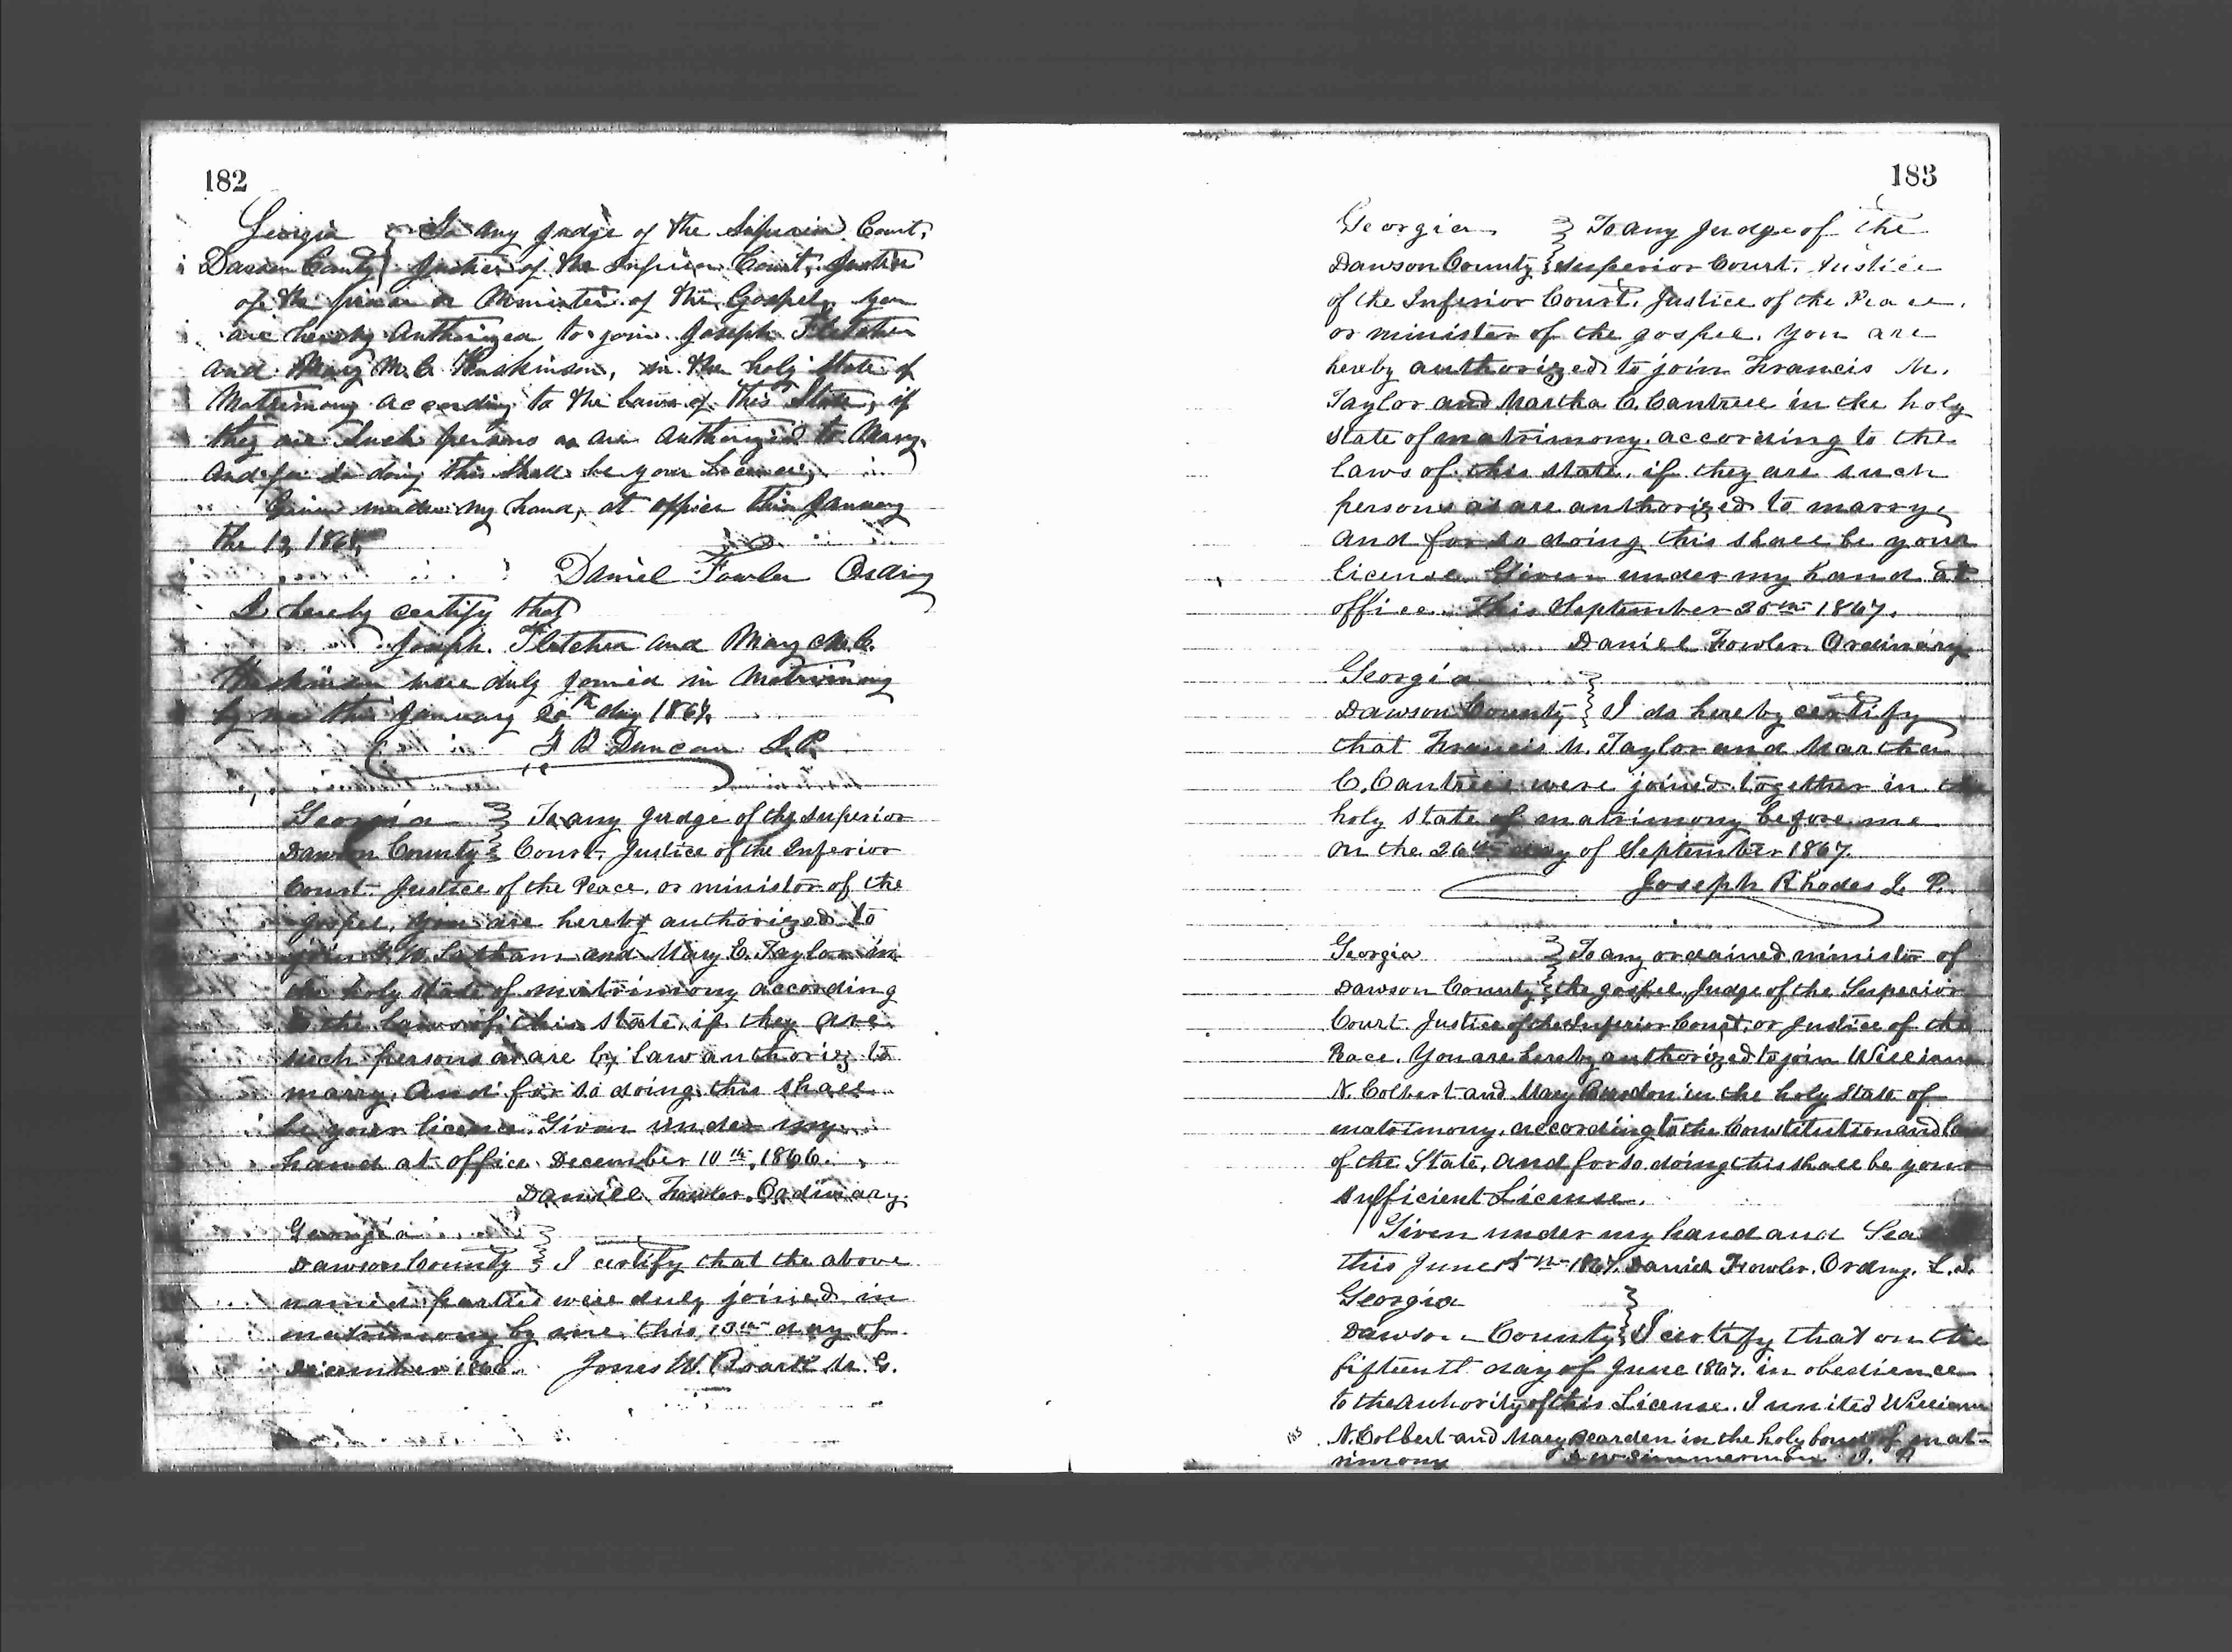 182
Georgia } To any Judge of the Superior Court,
Dawson County } Justice of the Inferior Court, Justice
of the peace or Minister of the Gospel, you
are hereby Authorized to join Joseph Fletcher
and Mary M. C. Huskinson, in the holy State of
Matrimony according to the Laws of this State, if
they are Such persons as are Authorized to Marry,
and for so doing this Shall be your License,
Given under my hand, at office this January
the 12, 186
Daniel Fowler Ordiny
I hereby certify that
Joseph Fletcher and Mary M. C.
Huskinson were duly joined in Matrimony
by me this January 20th day 1867.
Duncan J. P.
Georgia } To any Judge of the Superior
Dawson County } Court, Justice of the Inferior
Court Justice of the Peace, or minister of the
gospel, you are hereby authorized to
join Latham and Mary E. Taylor in
the holy state of matrimony according
to the laws of this state, if they are
such persons as are by law authoriz to
marry, And for so doing this shall
be your license. Given under my
hand at office December 10th, 1866.
Daniel Fowler, Ordinary.
Georgia
Dawson County } I certify that the above
named parties were duly joined in
matrimony by me, this 13th day of
December 1866. Jones W. Roark M. G.
183
Georgia } To any Judge of the
Dawson County } Superior Court, Justice
of the Inferior Court, Justice of the Peace,
or minister of the gospel, You are
hereby authorized to join Francis M.
Taylor and Martha C. Cantrell in the holy
state of matrimony, according to the
laws of this state, if they are such
persons as are authorized to marry,
and for so doing this shall be your
license. Given under my hand at
office. This September 25th 1867.
Daniel Fowler Ordinary
Georgia
Dawson County } I do hereby certify
that Francis M. Taylor and Martha
C. Cantrell were joined together in the
holy state of matrimony before me
on the 26th day of September 1867.
Joseph Rhodes J. P.
Georgia } To any ordained minister of
Dawson County } the gospel, Judge of the Superior
Court Justice of the Inferior Court, or Justice of the
Peace, You are hereby authorized to join William
N. Colbert and Mary Bearden in the holy State of
matrimony, according to the Constitution and Laws
of the State, and for so doing this shall be your
sufficient License.
Given under my hand and Seal
this June 15th 1867. Daniel Fowler, Ordny. L. S.
Georgia
Dawson County } I certify that on the
fifteenth day of June 1867. in obedience
to the authority of this License, I united William
183 N. Colbert and Mary Bearden in the holy bond of mat-
rimony